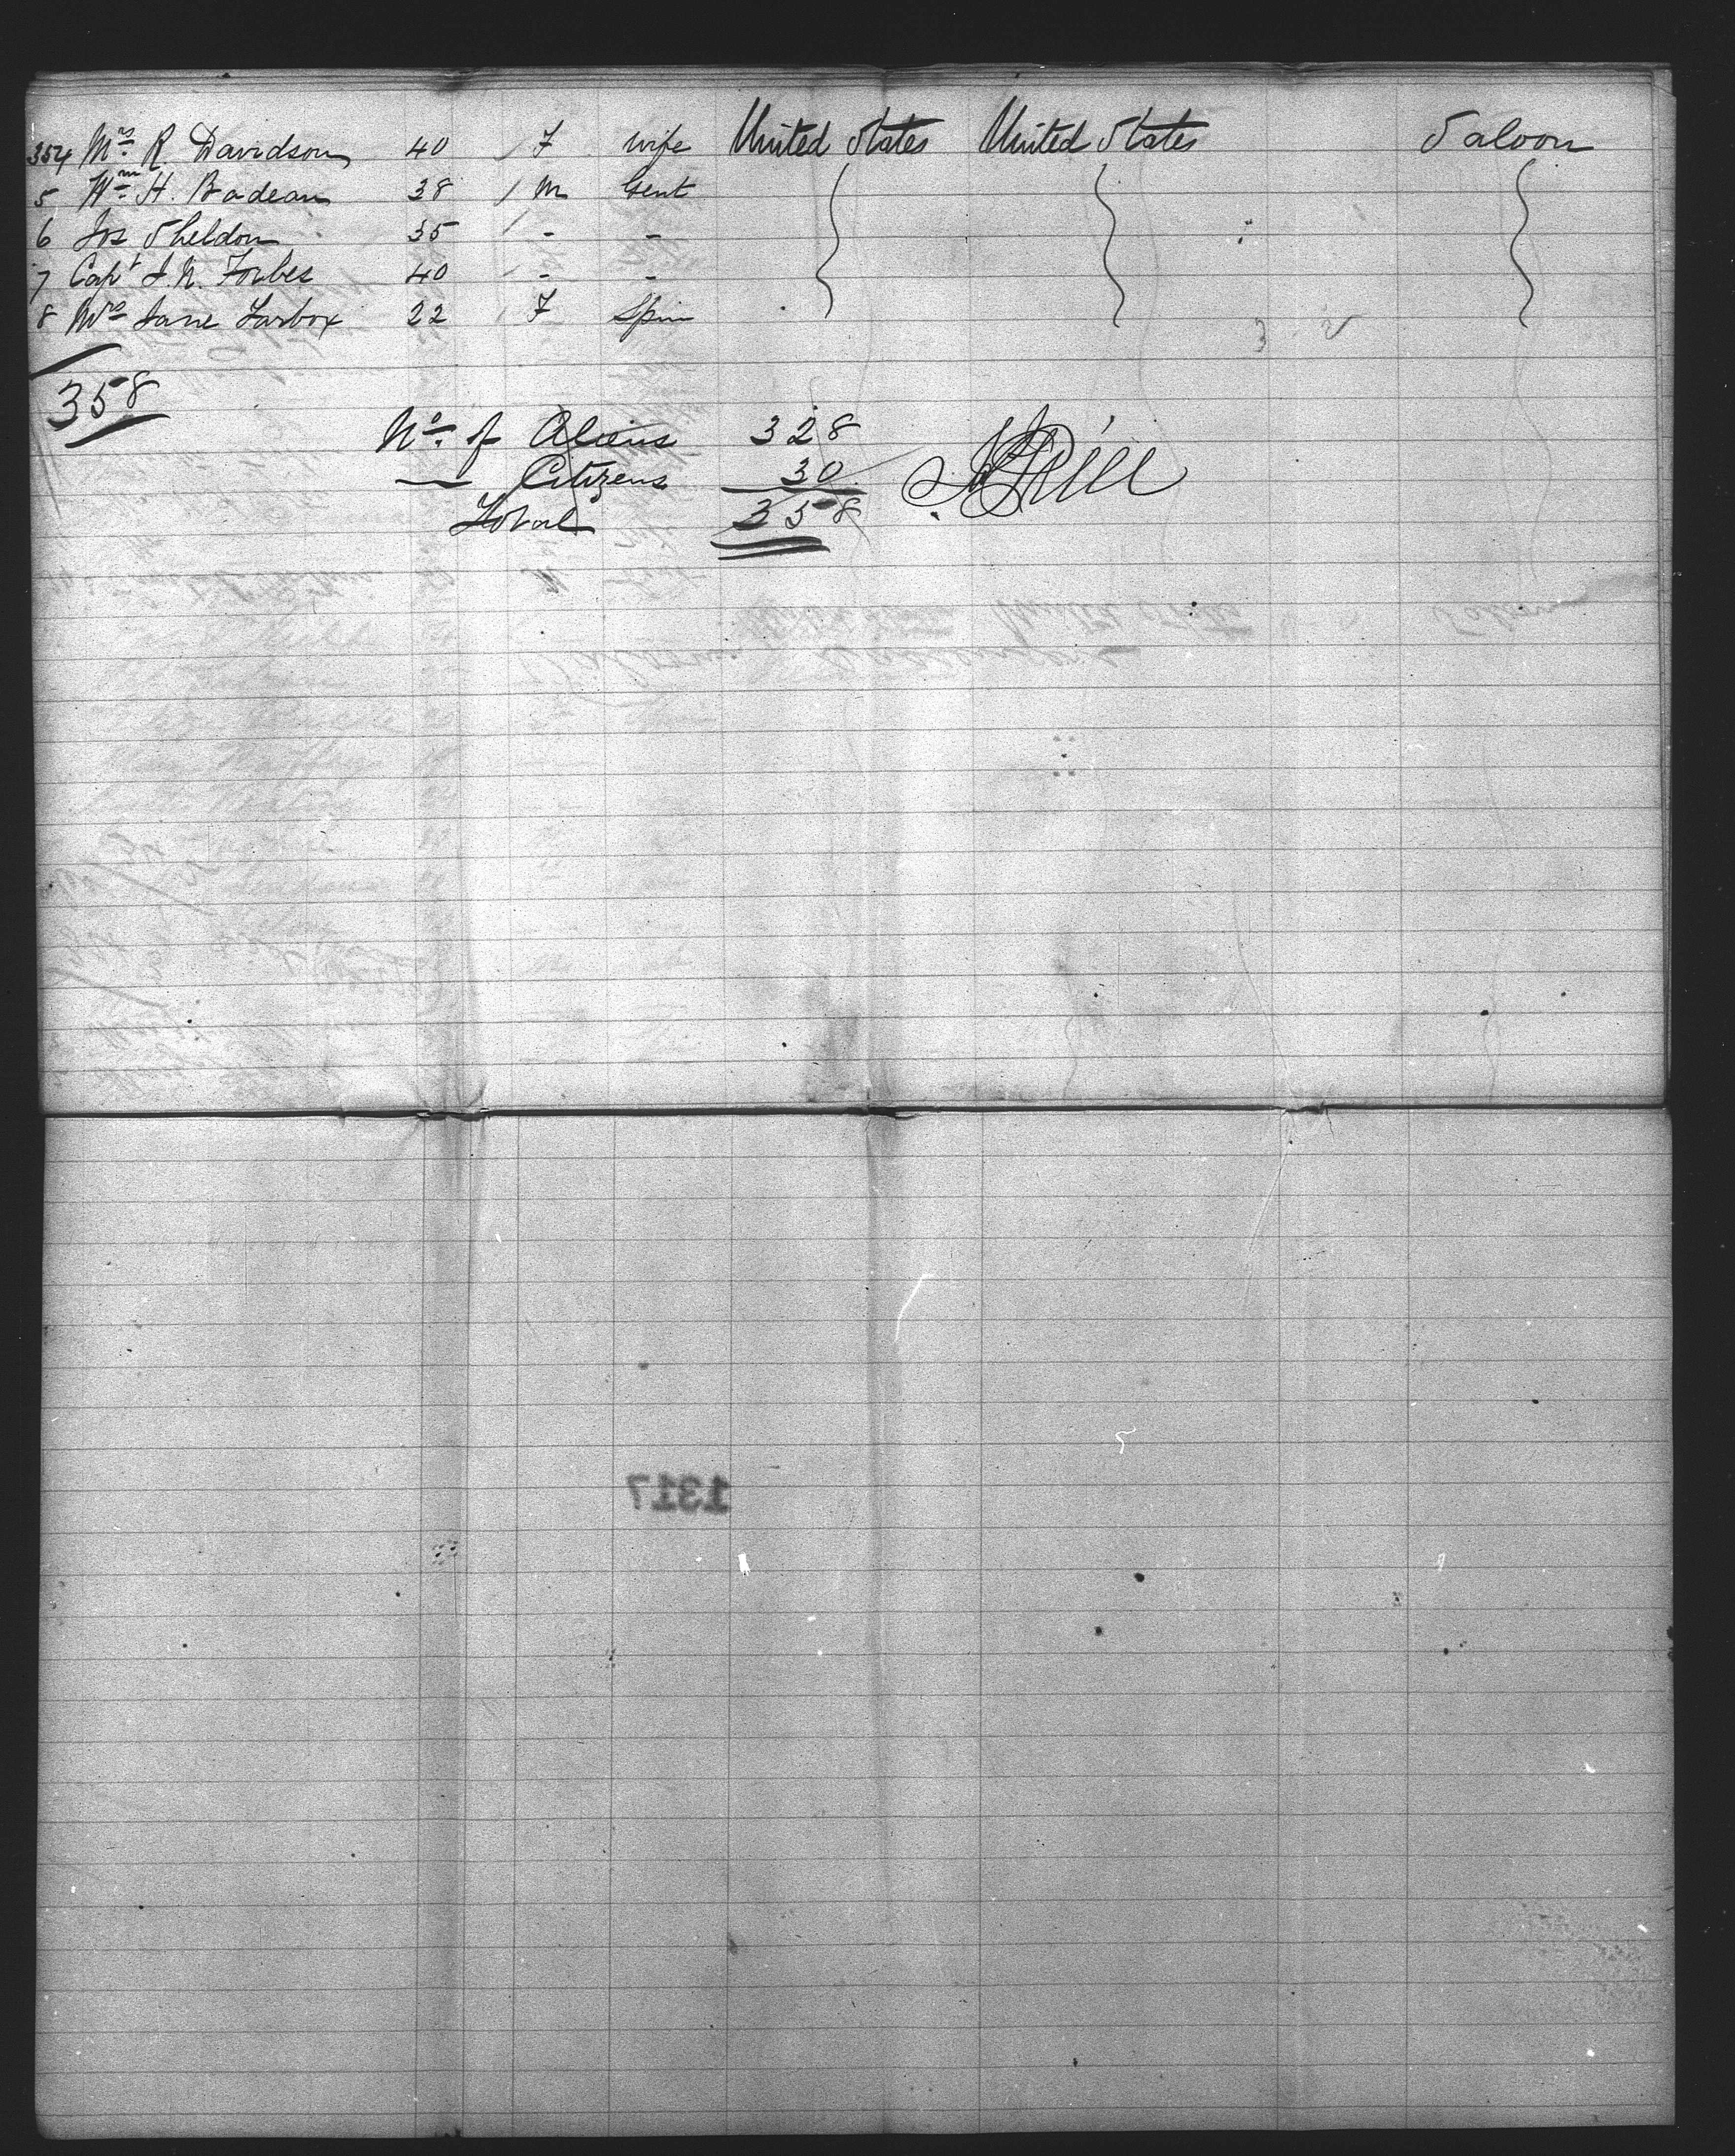 354 Mrs. R. Davidson 40 F wife United States United States Saloon
5 Wm. H. Badeau 38 M Gent
6 Jos Sheldon 35 - -
7 Capt J. N. Forbes 40 - -
8 Mrs Jane Tarbox 22 F Spin
358
No. of Aliens 328
— Citizens 30
Total 358
1317